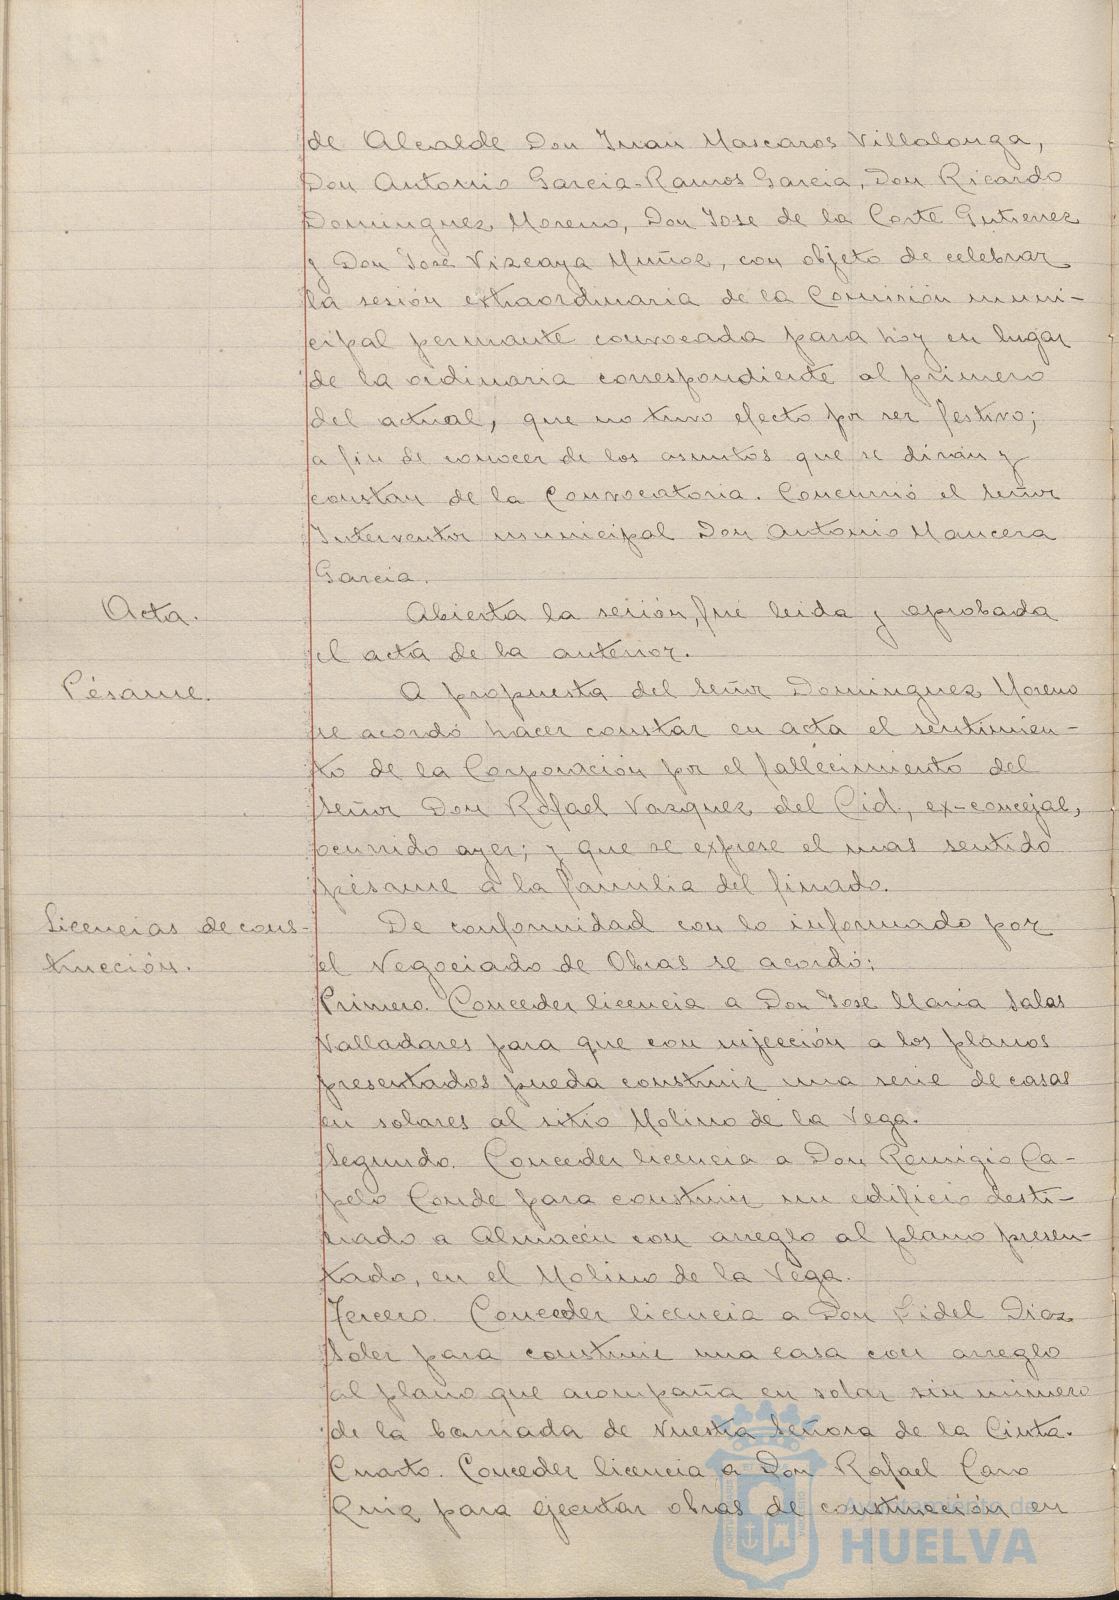 de Alcalde Don Juan Mascaros Villalonga,
Don Antonio Garcia-Ramos Garcia, Don Ricardo
Dominguez Moreno, Don Jose de la Corte Gutierrez
y Don José Vizcaya Muñoz, con objeto de celebrar
la sesión extraordinaria de la Comisión muni-
cipal permante convocada para hoy en lugar
de la ordinaria correspondiente al primero
del actual, que no tuvo efecto por ser festivo;
a fin de conocer de los asuntos que se dirán y
constan de la Convocatoria. Concurrió el señor
Interventor municipal Don Antonio Mancera
Garcia.
Acta.
Abierta la sesión, fué leida y aprobada
el acta de la anterior.
Pésame.
A propuesta del Señor Dominguez Moreno
se acordó hacer constar en acta el sentimien-
to de la Corporación por el fallecimiento del
Señor Don Rafael Vazquez del Cid, ex-concejal,
ocurrido ayer; y que se exprese el mas sentido
pésame a la familia del finado.
Licencias de cons-
trucción.
De conformidad con lo informado por
el Negociado de Obras se acordó:
Primero. Conceder licencia a Don Jose Maria Salas
Valladares para que con sujección a los planos
presentados pueda construir una serie de casas
en solares al sitio Molino de la Vega.
Segundo. Conceder licencia a Don Remigio Ca-
pelo Conde para construir un edificio desti-
nado a Almacén con arreglo al plano presen-
tado, en el Molino de la Vega.
Tercero. Conceder licencia a Don Fidel Diaz
Soler para construir una casa con arreglo
al plano que acompaña en solar sin número
de la barriada de Nuestra Señora de la Cinta.
Cuarto. Conceder licencia a Don Rafael Caro
Ruiz para ejecutar obras de construcción en
Ayuntamiento de
HUELVA